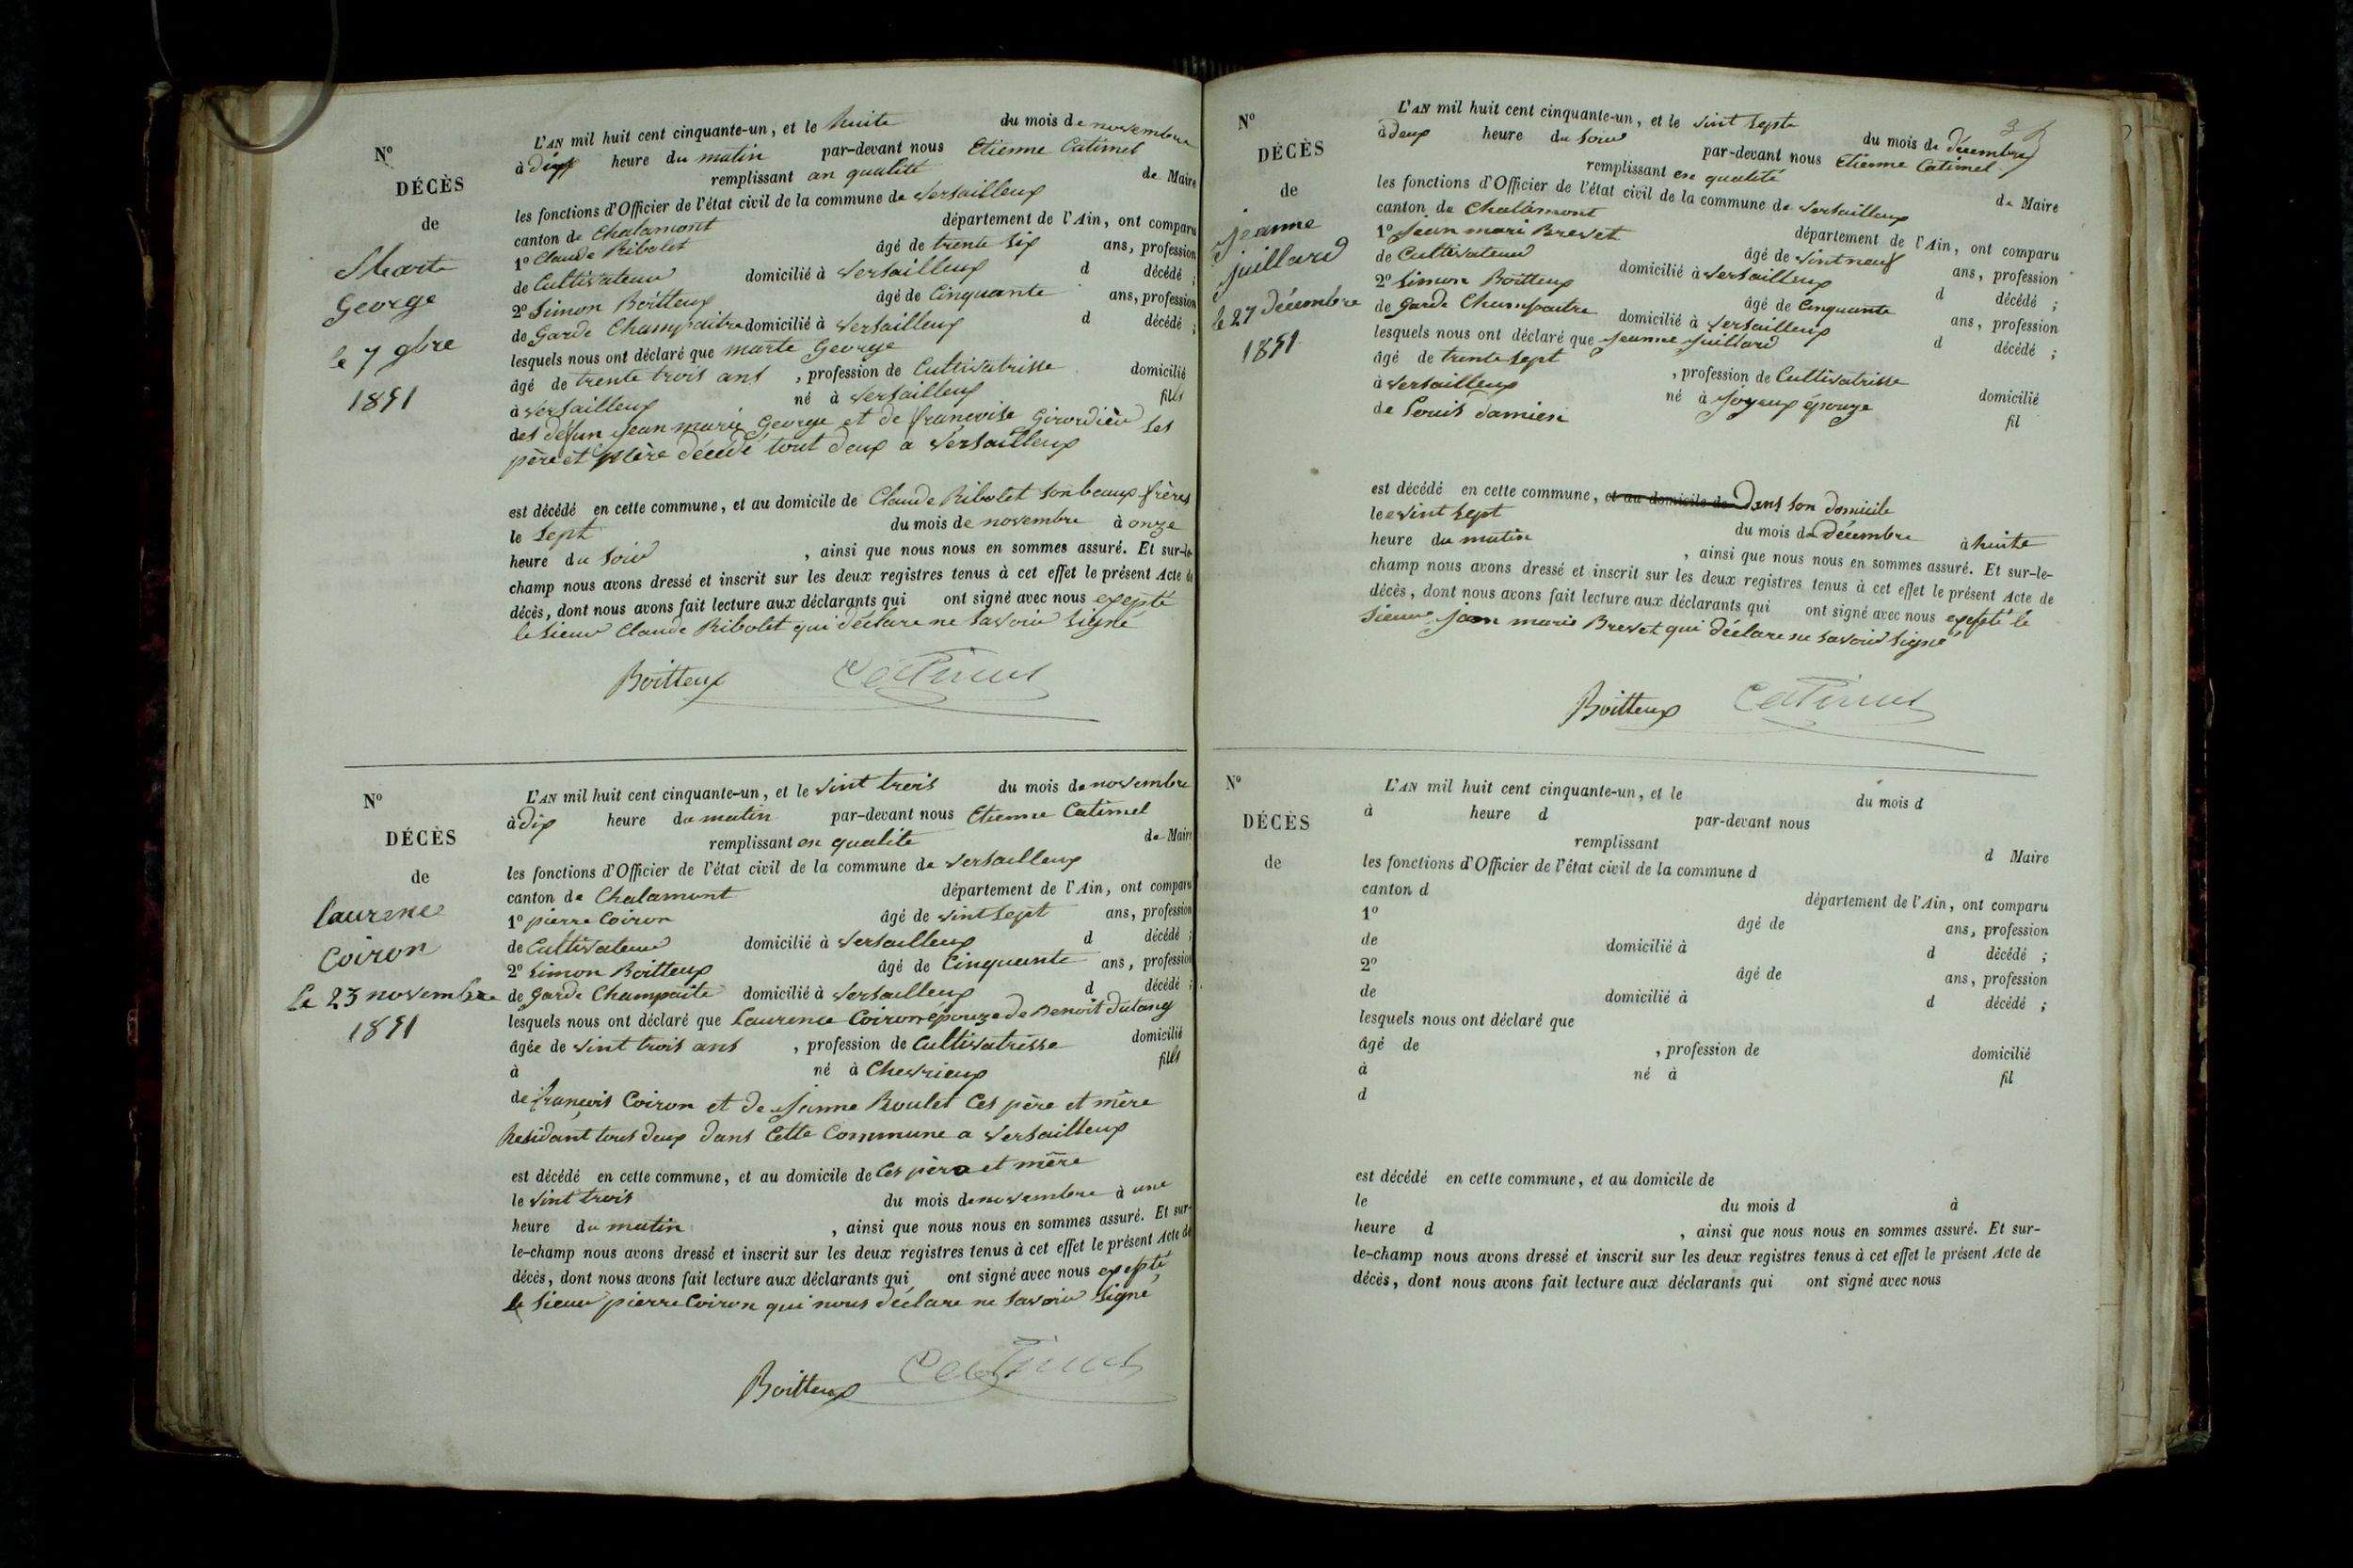 Nº
DÉCÈS
de
Marte
George
le 7 9bre
1851
L'AN mil huit cent cinquante-un, et le huite du mois de novembre
à dix heure du matin par-devant nous Etienne Catimel
remplissant an qualité de Maire
les fonctions d'Officier de l'état civil de la commune de Versailleux
canton de Chalamont département de l'Ain, ont comparu
1º Claude Ribolet âgé de trente six ans, profession
de Cultivateur domicilié à Versailleux d décédé ;
2º Simon Boitteux âgé de Cinquante ans, profession
de Garde Champaitre domicilié à Versailleux d décédé ;
lesquels nous ont déclaré que marte George
âgé de trente trois ans , profession de Cultivatrisse domicilié
à Versailleux né à Versailleux fills
des défun Jean marie George et de françoise Girardieu ses
père et Mère décédé tout deux a Versailleux
est décédé en cette commune, et au domicile de Claude Ribolet son beaux frères
le Sept du mois de novembre à onze
heure du Soir , ainsi que nous nous en sommes assuré. Et sur-le-
champ nous avons dressé et inscrit sur les deux registres tenus à cet effet le présent Acte de
décès, dont nous avons fait lecture aux déclarants qui ont signé avec nous exepté
le Sieur Claude Ribolet qui déclare ne Savoir Signé
Boitteux Catimel
Nº
DÉCÈS
de
Laurence
Coiron
Le 23 novembre
1851
L'AN mil huit cent cinquante-un, et le vint trois du mois de novembre
à dix heure du matin par-devant nous Etienne Catimel
remplissant en qualité de Maire
les fonctions d'Officier de l'état civil de la commune de Versailleux
canton de Chalamont département de l'Ain, ont comparu
1º pierre Coiron âgé de vint Sept ans, profession
de Cultivateur domicilié à Versailleux d décédé ;
2º Simon Boitteux âgé de Cinquante ans, profession
de Garde Champaite domicilié à Versailleux d décédé ;
lesquels nous ont déclaré que Laurence Coiron épouze de Benoit dutang
âgée de vint trois ans , profession de Cultivatrisse domicilié
à né à Chevrieux fills
de françois Coiron et de Janne Boulet Ces père et mère
Residant tous deux dans Cette Commune a Versailleux
est décédé en cette commune, et au domicile de Ces père et mère
le vint trois du mois de novembre à une
heure du matin , ainsi que nous nous en sommes assuré. Et sur-
le-champ nous avons dressé et inscrit sur les deux registres tenus à cet effet le présent Acte de
décès, dont nous avons fait lecture aux déclarants qui ont signé avec nous exepté
le Sieur pierre Coiron qui nous déclare ne Savoir Signé
Boitteux Catimel
Nº
DÉCÈS
de
Jeanne
juillard
le 27 décembre
1851
L'AN mil huit cent cinquante-un, et le vint Septe du mois de décembre
à deux heure du Soir par-devant nous Etienne Catimel
remplissant en qualité de Maire
les fonctions d'Officier de l'état civil de la commune de Versailleux
canton de Chalamont département de l'Ain, ont comparu
1º Jean mari Brevet âgé de vint neuf ans, profession
de Cultivateur domicilié à Versailleux d décédé ;
2º Simon Boitteux âgé de Cinquante ans, profession
de Garde Champaitre domicilié à Versailleux d décédé ;
lesquels nous ont déclaré que Jeanne Juillard
âgé de trente Sept , profession de Cultivatrisse domicilié
à Versailleux né à Joyeux épouze fil
de Louis Damien
est décédé en cette commune, et au domicile de Dans son domicile
le vint Sept du mois de décembre à huite
heure du matin , ainsi que nous nous en sommes assuré. Et sur-le-
champ nous avons dressé et inscrit sur les deux registres tenus à cet effet le présent Acte de
décès, dont nous avons fait lecture aux déclarants qui ont signé avec nous exepté le
Sieur jean marie Brevet qui déclare ne Savoir Signé
Boitteux Catimel
Nº
DÉCÈS
de
L'AN mil huit cent cinquante-un, et le du mois d
à heure d par-devant nous
remplissant d Maire
les fonctions d'Officier de l'état civil de la commune d
canton d département de l'Ain, ont comparu
1º âgé de ans, profession
de domicilié à d décédé ;
2º âgé de ans, profession
de domicilié à d décédé ;
lesquels nous ont déclaré que
âgé de , profession de domicilié
à né à fil
d
est décédé en cette commune, et au domicile de
le du mois d à
heure d , ainsi que nous nous en sommes assuré. Et sur-
le-champ nous avons dressé et inscrit sur les deux registres tenus à cet effet le présent Acte de
décès, dont nous avons fait lecture aux déclarants qui ont signé avec nous